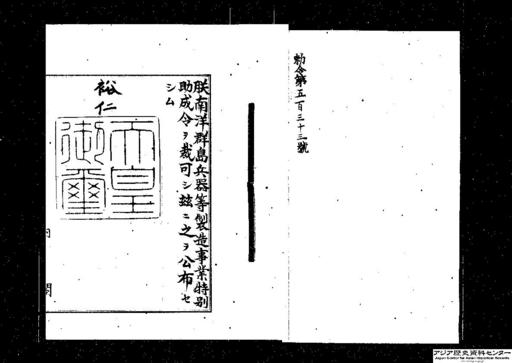 勅令第五百三十三號
朕南洋群島兵器等製造事業特別
助成令ヲ裁可シ玆ニ之ヲ公布セ
シム
裕仁
天皇
御璽
内
閣
アジア歴史資料センター
Japan Center for Asian Historical Records